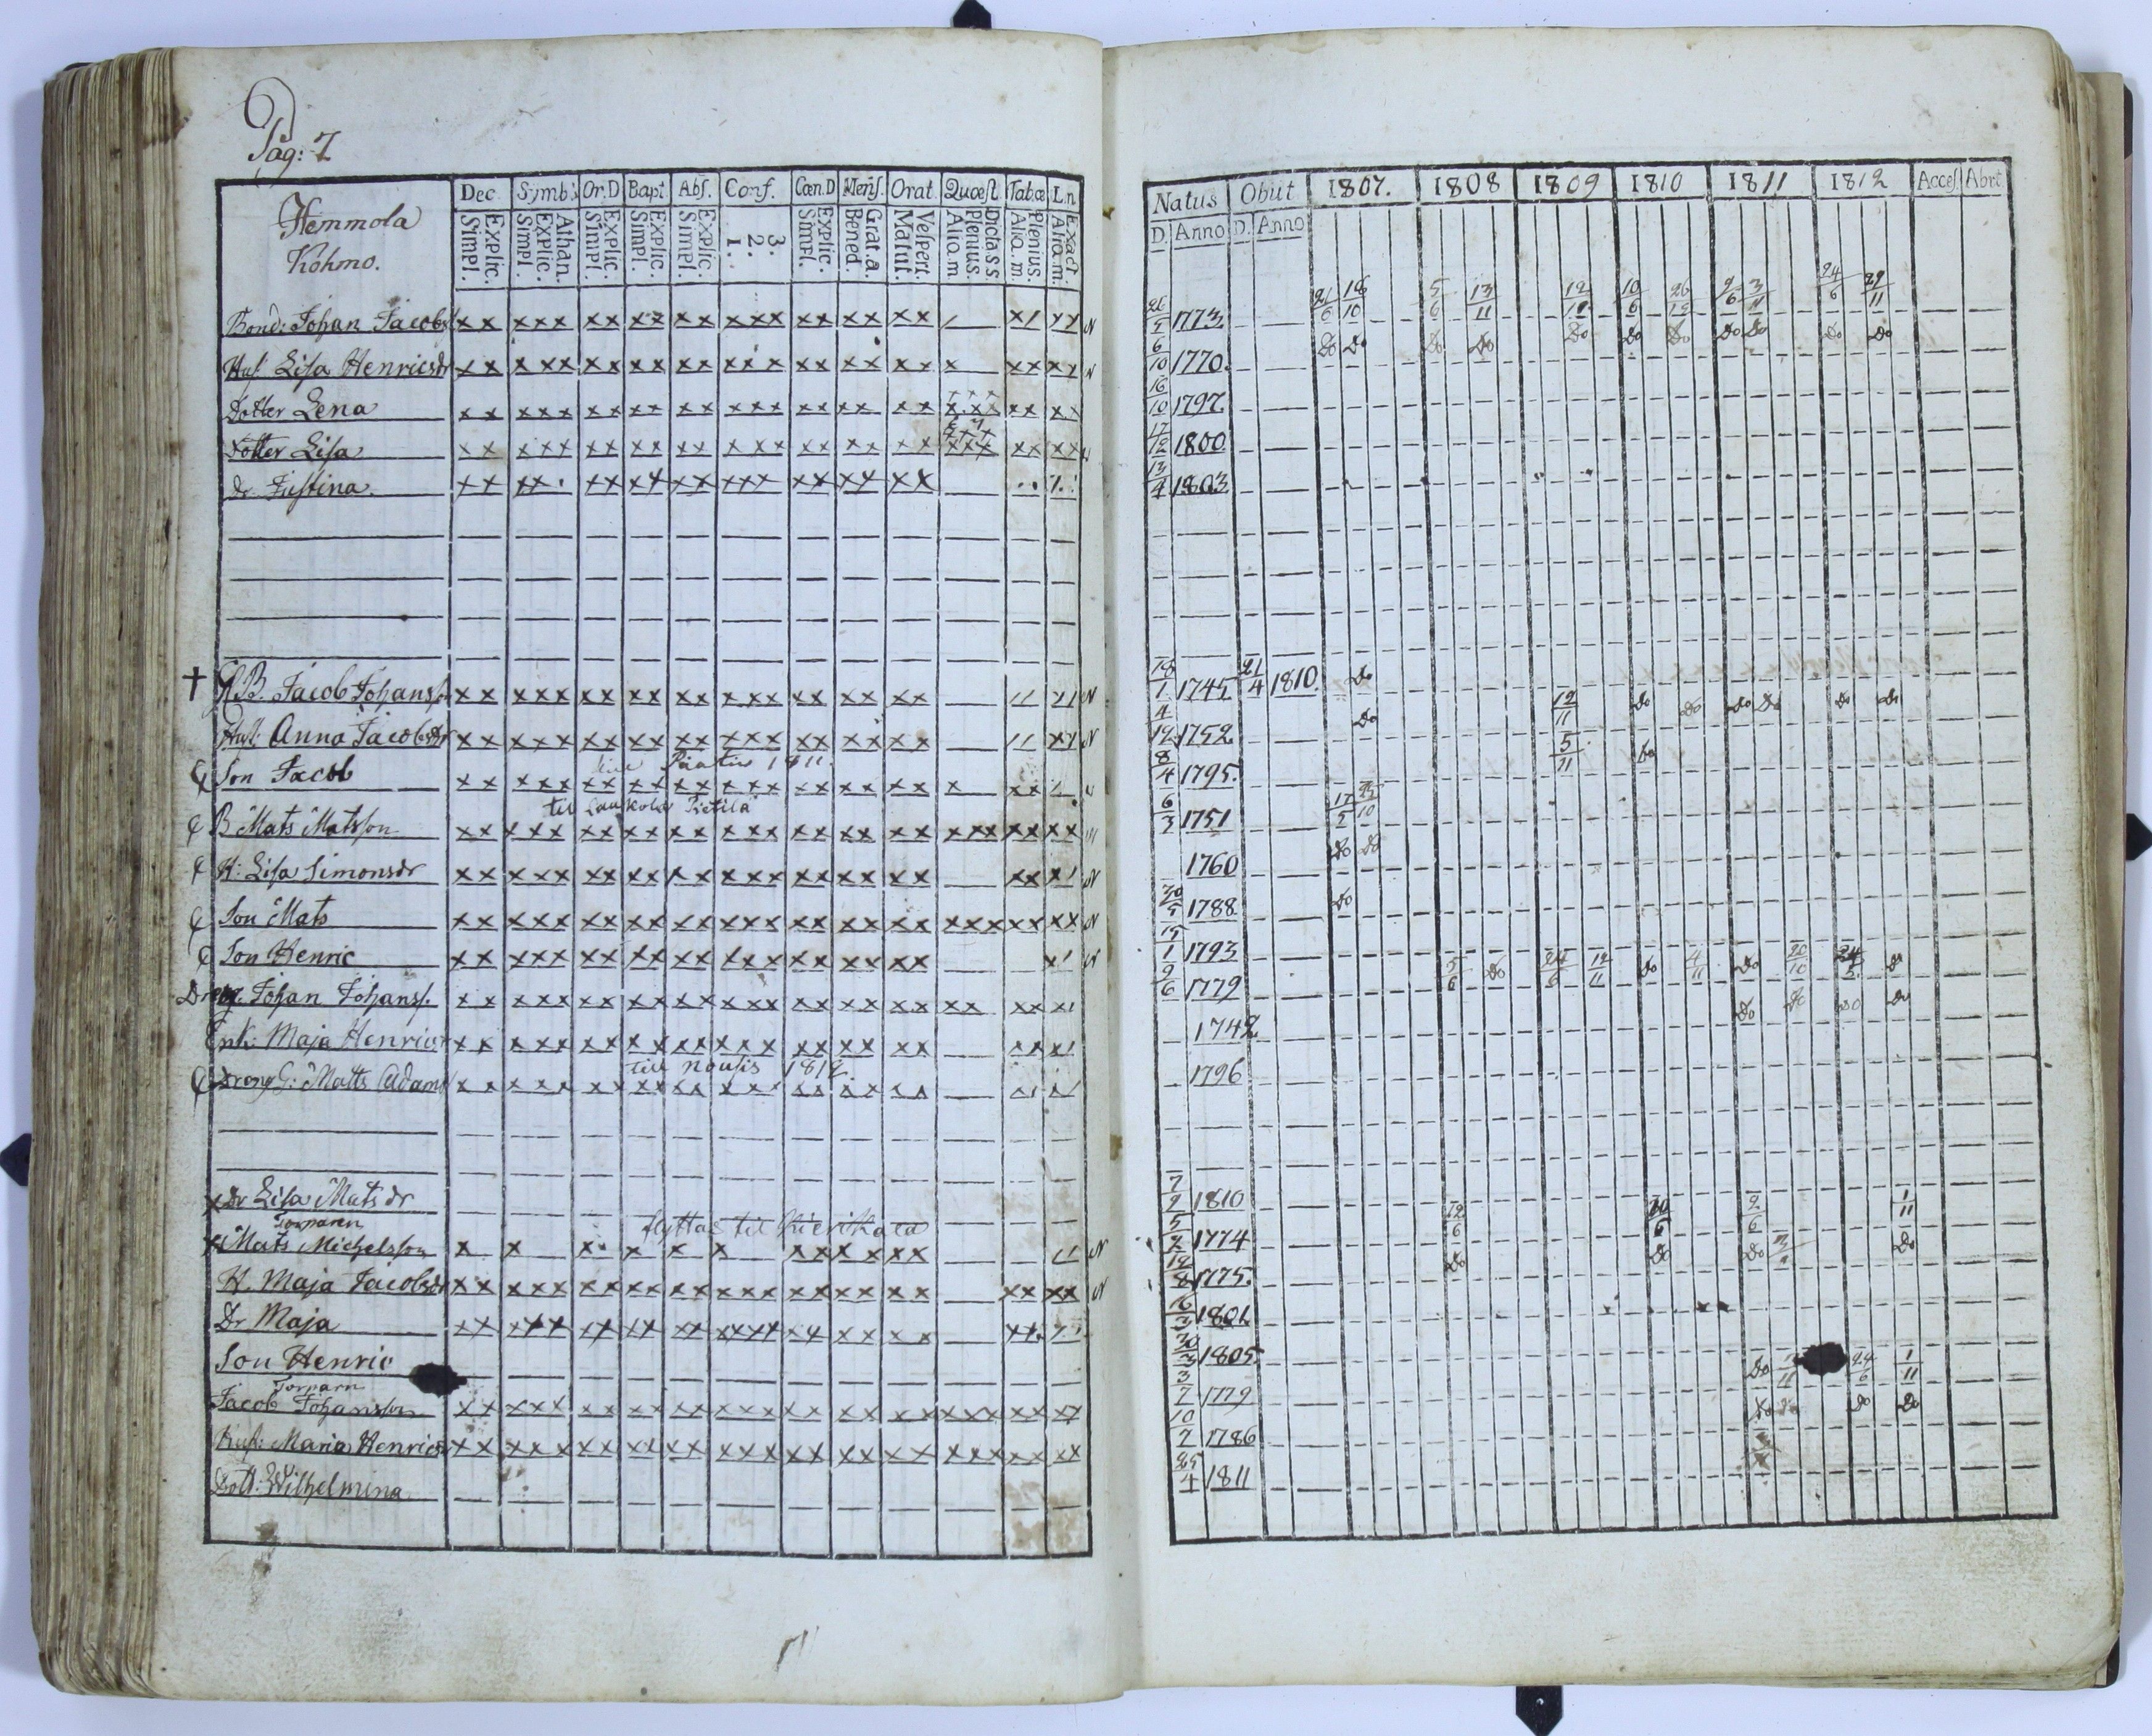 Pag: 7
Hemmola
Köhmo.
Dec. Symb: Or.D Bapt Abs. Conf. Cœn.D Mens. Orat. Quæst. Tab.œ L.n.
Simpl. Explic. Simpl. Explic. Athan. Simpl. Explic. Simpl. Explic. Simpl. Explic. 1. 2. 3. Simpl. Explic. Bened. Grat.a. Matut. Vespert. Alio.m. Plenius. Dicta.s.s. Alia.m. Plenius. Alia.m. Exact.
Bond: Johan Jacobs
Hus. Lisa Henricsdr
Dotter Lena
Dotter Lisa
Dr Justina.
† G.B. Jacob Johansson
Hust: Anna Jacobsdr
1811.
Son Jacob
till Laukola Pietilä
B Mats Matsson
H: Lisa Simonsdr
Son Mats
Son Henric
Dreng. Johan Johanss.
Enk: Maja Henrics
till Nousis 1812
Dreng G: Matts Adams
Dr Lisa Matsdr
Torparen flyttat til
Mats Michelsson
H. Maja Jacobsdr
Dr Maja
Son Henric
Torparn
Jacob Johansson
Hust: Maria Henrics
Dott: Wilhelmina
Natus Obiit 1807. 1808 1809 1810 1811 1812 Access. Abiit
D. Anno D. Anno
26/5 1773 21/6 18/10 5/6 13/11 12/11 10/6 26/12 2/6 3/11 24/6 29/11
6/10 1770. Do Do Do Do Do Do Do Do Do Do Do
16/10 1797.
17/12 1800.
13/4 1803.
1/1745 21/4 1810. Do
4/12 1752 Do 12/11 Do Do Do Do Do Do
8/4 1795. 5/11 Do
6/3 1751 17/5 25/10
1760 Do Do
30/5 1788 Do
15/1 1793
9/6 1779 5/6 Do 24/6 12/11 Do 4/11 Do 20/10 24/5 Do
1742 Do Do Do Do
1796
7/2 1810
5/2 1774 12/6 10/6 2/6 1/11
12/8 1775. Do Do Do Do
16/3 1801
30/3 1805.
3/7 1779 Do 24/6 1/11
10/7 1786 Do Do
25/4 1811